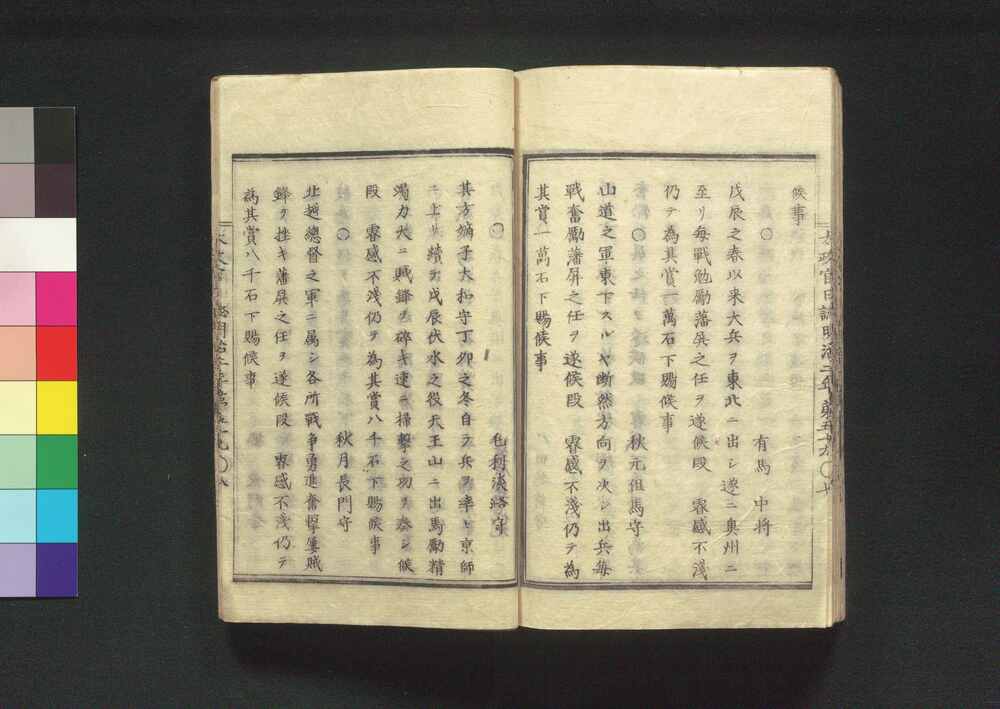 候事
○
有馬中将
戊辰之春以来大兵ヲ東北ニ出シ遂ニ奥州ニ
至リ毎戦勉勵藩屏之任ヲ遂候段 睿感不淺
仍テ為其賞一萬石下賜候事
○
秋元但馬守
山道之軍東下スルヤ断然方向ヲ決シ出兵毎
戦奮勵藩屏之任ヲ遂候段 睿感不淺仍テ為
其賞一萬石下賜候事
太政官日誌明治二年第五十九 ○ 十
○
毛利淡路守
其方嫡子大和守丁卯之冬自ラ兵ヲ率ヒ京師
ニ上リ續テ戊辰伏水之役天王山ニ出馬勵精
竭力大ニ賊鋒ヲ碎キ速ニ掃撃之功ヲ奏シ候
段 睿感不淺仍テ為其賞八千石下賜候事
○
秋月長門守
北越總督之軍ニ属シ各所戦争勇進奮撃屡賊
鋒ヲ挫キ藩屏之任ヲ遂候段 睿感不淺仍テ
為其賞八千石下賜候事